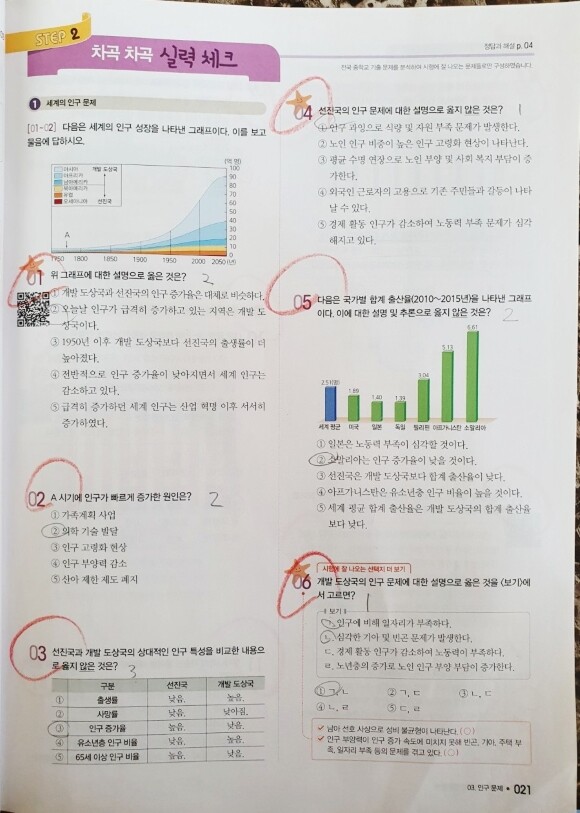 STEP 2
차곡 차곡 실력 체크
정답과 해설 p. 04
전국 중학교 기출 문제를 분석하여 시험에 잘 나오는 문제들로만 구성하였습니다.
1 세계의 인구 문제
[01~02] 다음은 세계의 인구 성장을 나타낸 그래프이다. 이를 보고
물음에 답하시오.
(억 명)
아시아
아프리카
남아메리카
북아메리카
유럽
오세아니아
개발 도상국
선진국
100
90
80
70
60
50
40
30
20
10
0
A
1750 1800 1850 1900 1950 2000 2050(년)
01 위 그래프에 대한 설명으로 옳은 것은? 2
① 개발 도상국과 선진국의 인구 증가율은 대체로 비슷하다.
② 오늘날 인구가 급격히 증가하고 있는 지역은 개발 도
상국이다.
③ 1950년 이후 개발 도상국보다 선진국의 출생률이 더
높아졌다.
④ 전반적으로 인구 증가율이 낮아지면서 세계 인구는
감소하고 있다.
⑤ 급격히 증가하던 세계 인구는 산업 혁명 이후 서서히
증가하였다.
02 A 시기에 인구가 빠르게 증가한 원인은? 2
① 가족계획 사업
② 의학 기술 발달
③ 인구 고령화 현상
④ 인구 부양력 감소
⑤ 산아 제한 제도 폐지
03 선진국과 개발 도상국의 상대적인 인구 특성을 비교한 내용으
로 옳지 않은 것은? 3
구분 선진국 개발 도상국
① 출생률 낮음. 높음.
② 사망률 낮음. 낮아짐.
③ 인구 증가율 높음. 낮음.
④ 유소년층 인구 비율 낮음. 높음.
⑤ 65세 이상 인구 비율 높음. 낮음.
04 선진국의 인구 문제에 대한 설명으로 옳지 않은 것은? 1
① 인구 과잉으로 식량 및 자원 부족 문제가 발생한다.
② 노인 인구 비중이 높은 인구 고령화 현상이 나타난다.
③ 평균 수명 연장으로 노인 부양 및 사회 복지 부담이 증
가한다.
④ 외국인 근로자의 고용으로 기존 주민들과 갈등이 나타
날 수 있다.
⑤ 경제 활동 인구가 감소하여 노동력 부족 문제가 심각
해지고 있다.
05 다음은 국가별 합계 출산율(2010~2015년)을 나타낸 그래프
이다. 이에 대한 설명 및 추론으로 옳지 않은 것은? 2
2.51(명)
1.89
1.40
1.39
3.04
5.13
6.61
세계 평균 미국 일본 독일 필리핀 아프가니스탄 소말리아
① 일본은 노동력 부족이 심각할 것이다.
② 소말리아는 인구 증가율이 낮을 것이다.
③ 선진국은 개발 도상국보다 합계 출산율이 낮다.
④ 아프가니스탄은 유소년층 인구 비율이 높을 것이다.
⑤ 세계 평균 합계 출산율은 개발 도상국의 합계 출산율
보다 낮다.
시험에 잘 나오는 선택지 더 보기
06 개발 도상국의 인구 문제에 대한 설명으로 옳은 것을 <보기>에
서 고르면? 1
보기
ㄱ. 인구에 비해 일자리가 부족하다.
ㄴ. 심각한 기아 및 빈곤 문제가 발생한다.
ㄷ. 경제 활동 인구가 감소하여 노동력이 부족하다.
ㄹ. 노년층의 증가로 노인 인구 부양 부담이 증가한다.
① ㄱ, ㄴ ② ㄱ, ㄷ ③ ㄴ, ㄷ
④ ㄴ, ㄹ ⑤ ㄷ, ㄹ
✓ 남아 선호 사상으로 성비 불균형이 나타난다. (○)
✓ 인구 부양력이 인구 증가 속도에 미치지 못해 빈곤, 기아, 주택 부
족, 일자리 부족 등의 문제를 겪고 있다. (○)
03. 인구 문제 • 021